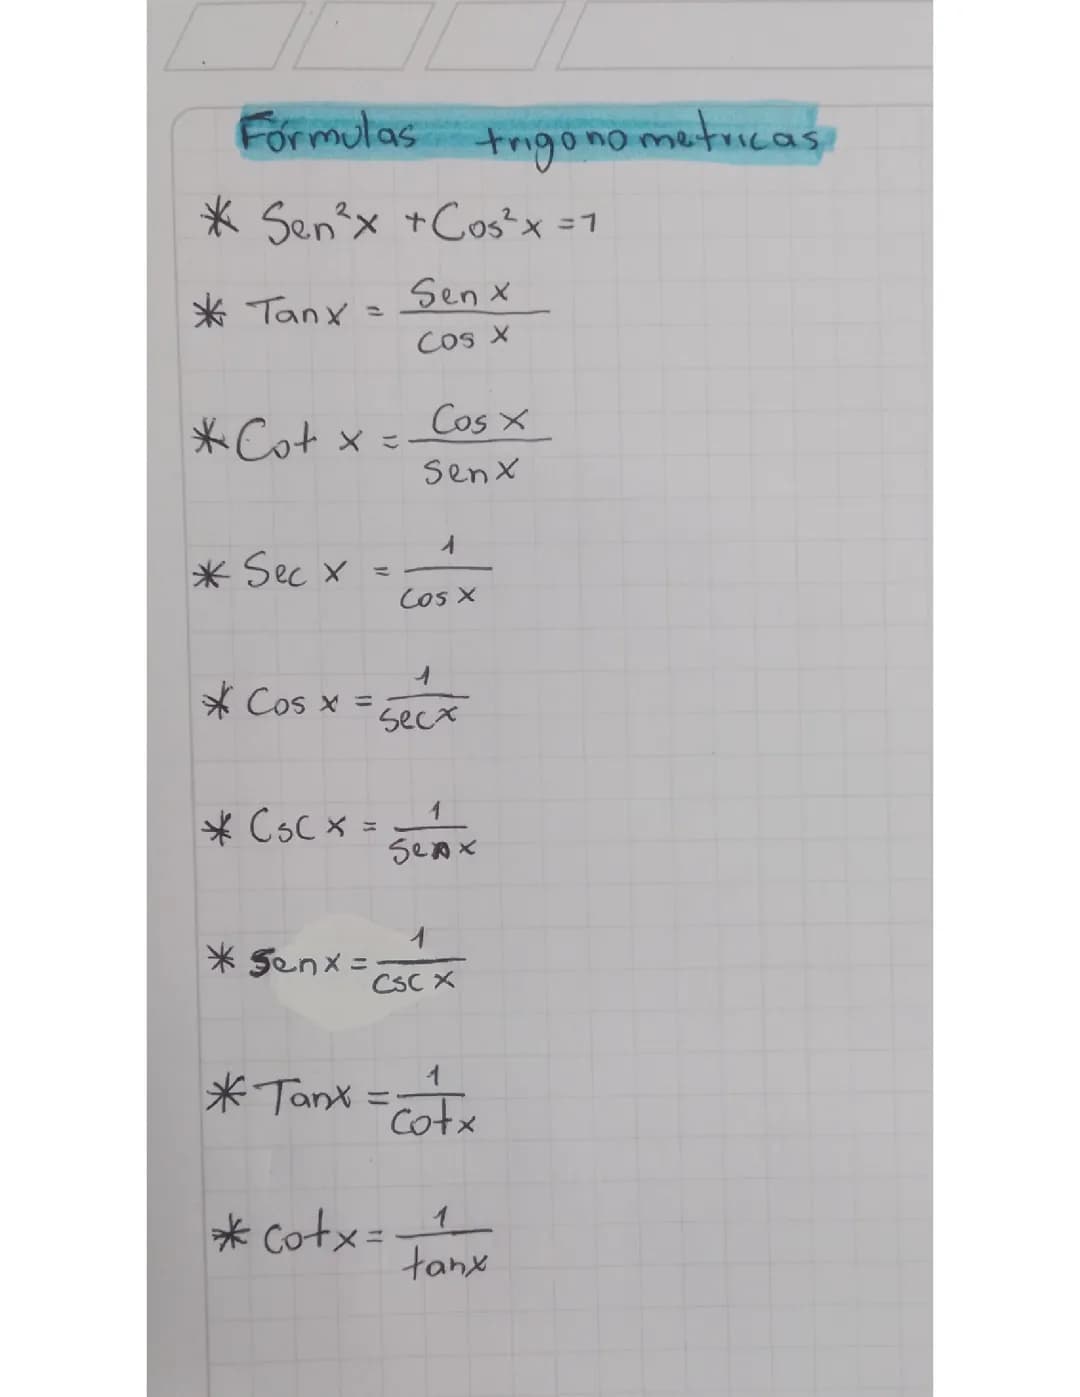 Fórmulas trigonometricas
* Sen²x + Cos²x = 1
* Tanx = Sen x / cos x
* Cot x = Cos x / Sen x
* Sec x = 1 / cos x
* Cos x = 1 / sec x
* Csc x = 1 / Sen x
* Sen x = 1 / csc x
* Tanx = 1 / Cot x
* cot x = 1 / tan x